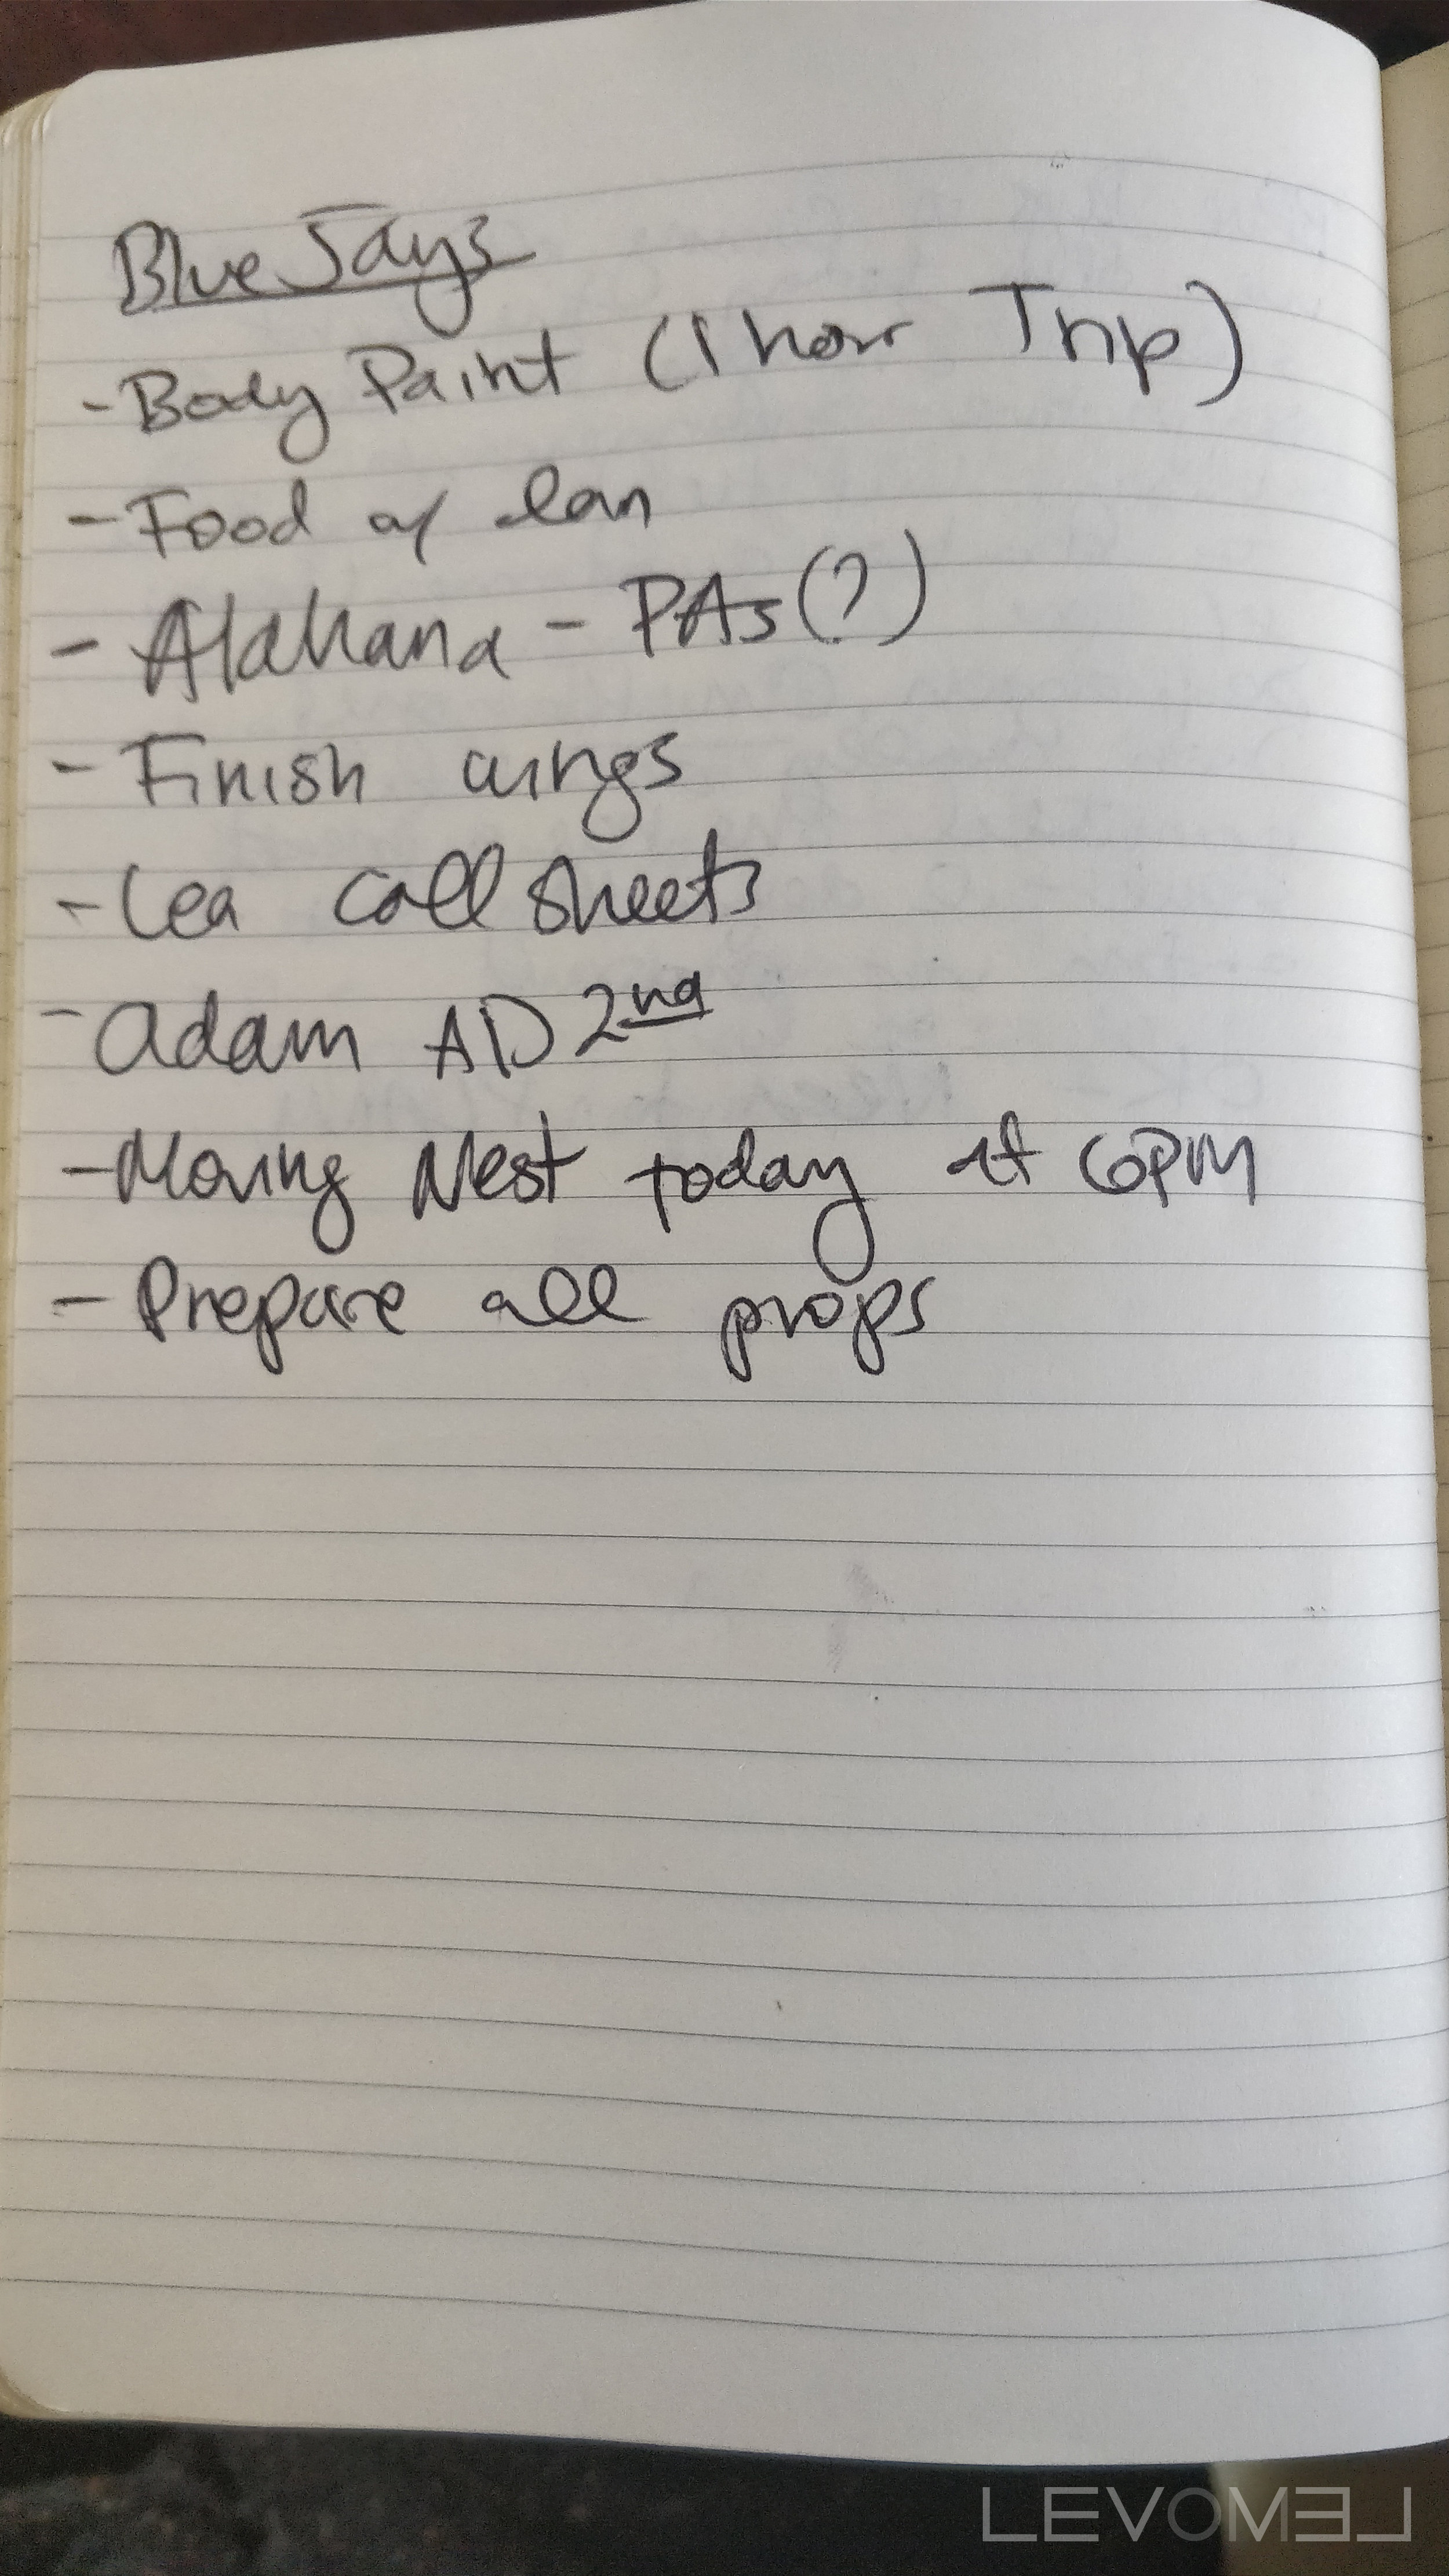 Blue Jays
- Body Paint (1 hour Trip)
- Food w/ Ian
- Alahana - PAs (?)
- Finish wings
- Lea call sheets
- Adam AD 2nd
- Moving Nest today at 6PM
- Prepare all props
LEVOMEL